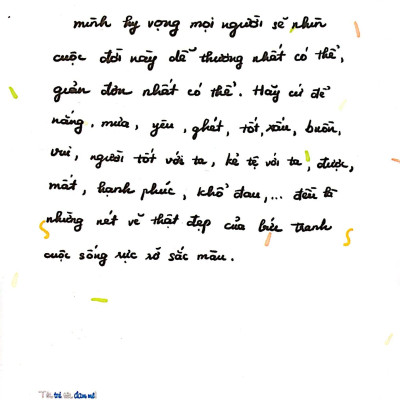 mình hy vọng mọi người sẽ nhìn
cuộc đời này dễ thương nhất có thể,
giản đơn nhất có thể. Hãy cứ để
nắng, mưa, yêu, ghét, tốt, xấu, buồn,
vui, người tốt với ta, kẻ tệ với ta, được,
mất, hạnh phúc, khổ đau,... đều là
những nét vẽ thật đẹp của bức tranh
cuộc sống rực rỡ sắc màu.